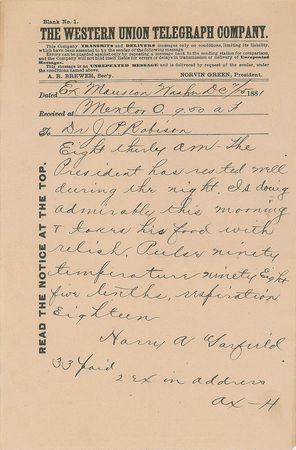 Blank No. 1.
THE WESTERN UNION TELEGRAPH COMPANY.
This Company TRANSMITS and DELIVERS messages only on conditions, limiting its liability, which have been assented to by the sender of the following message.
Errors can be guarded against only by repeating a message back to the sending station for comparison, and the Company will not hold itself liable for errors or delays in transmission or delivery of Unrepeated Messages.
This message is an UNREPEATED MESSAGE and is delivered by request of the sender, under the conditions named above.
A. R. BREWER, Sec'y. NORVIN GREEN, President.
Dated Ex Mansion Washn DC 1881
Received at Mentor O. 9.00 a
To Dr J. P. Robison
Eight thirty am - The
President has rested well
during the night. Is doing
admirably this morning
& takes his food with
relish, Pulse ninety
temperature ninety Eight
five tenths, respiration
Eighteen
Harry A Garfield
33 paid
2 ex in address
READ THE NOTICE AT THE TOP.